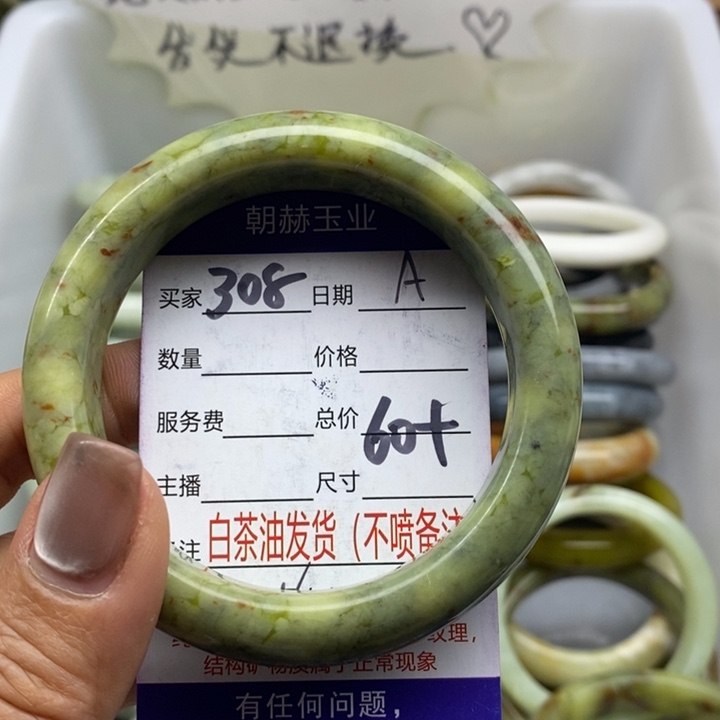 不退换
朝赫玉业
买家 308 日期 A
数量 价格
服务费 总价 60+
主播 尺寸
注 白茶油发货（不喷备注
纹理，
结构矿物质属于正常现象
有任何问题，